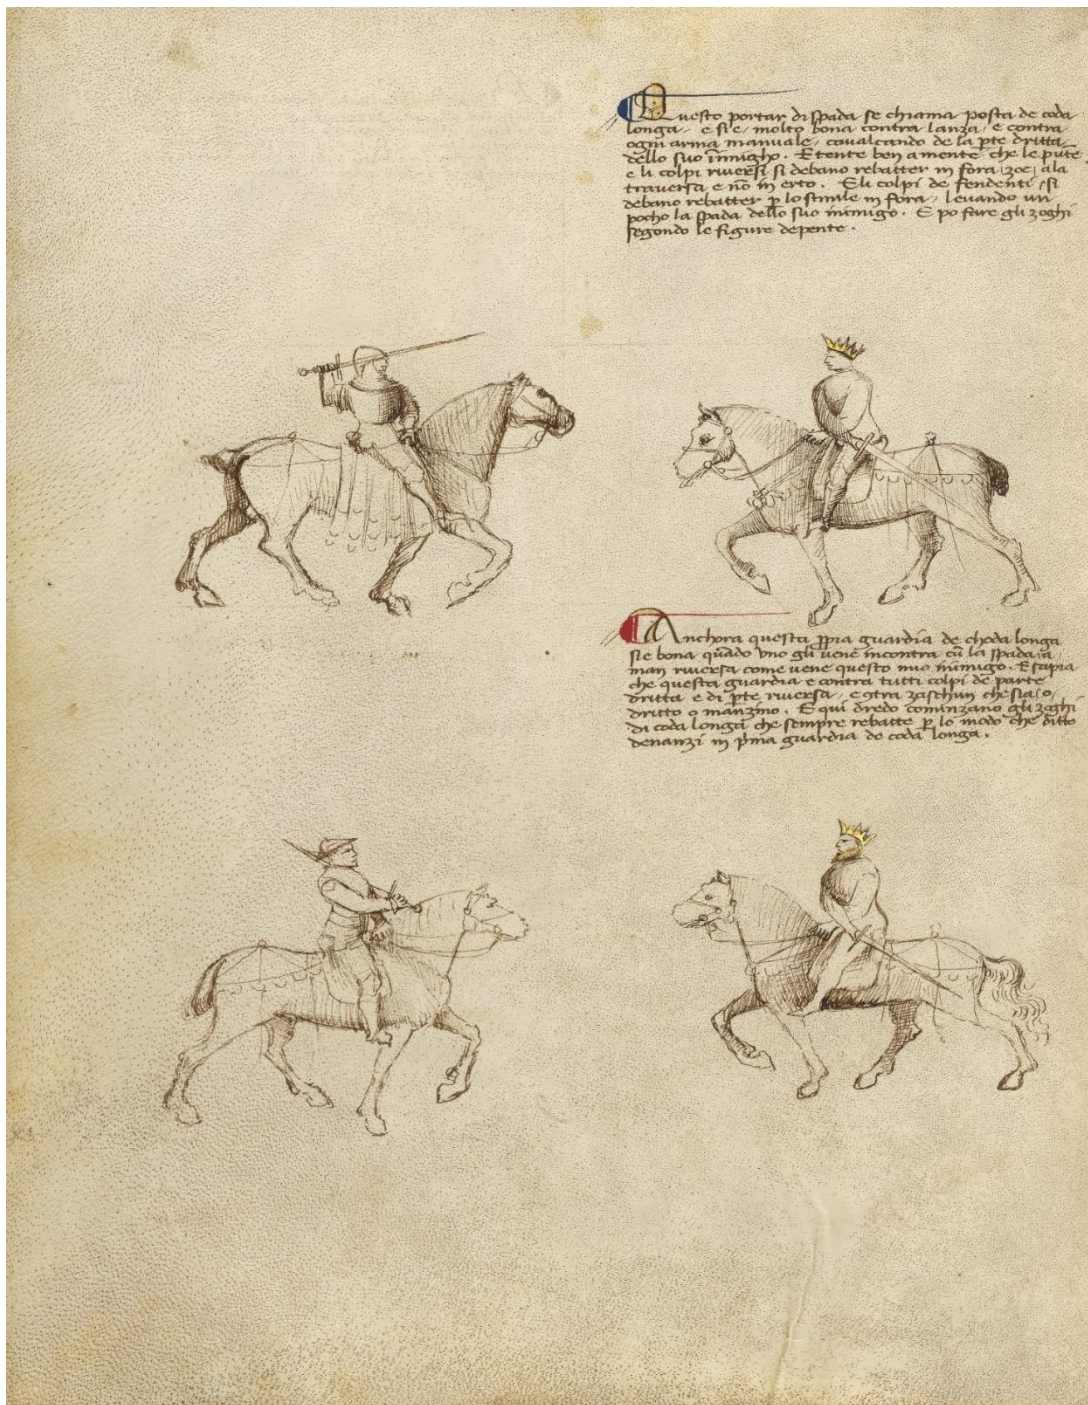 Questo portar di spada se chiama posta de coda
longa e si e molto bona contra lanza e contra
ogni arma manuale, cavalcando de la pte dritta
dello suo inimigho. E tente ben a mente che le pūte
e li colpi riversi si debano rebatter in fora, zoe, ala
traversa e nō in erto. E li colpi de fendenti, si
debano rebatter p lo simile in fora, levando un
pocho la spada dello suo inimigo. E po fare gli zoghi
segondo le figure depente.
Anchora questa ppia guardia de choda longa
si e bona quādo uno gli vene incontra cū la spada a
man riversa come vene questo mio inimigo. E sapia
che questa guardia e contra tutti colpi de parte
dritta e di pte riversa, e 9tra zaschun che sia, o
dritto o manzino. E qui dredo cominzano gli zoghi
di coda longa che sempre rebatte p lo modo che ditto
denanzi in pma guardia de coda longa.